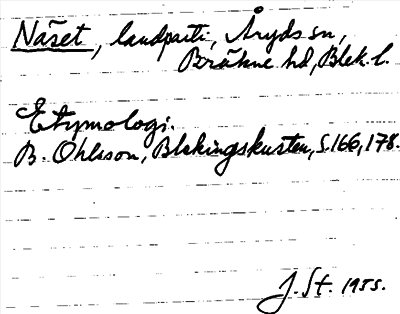 Näset, landparti, Åryds sn,
Bräkne hd, Blek. l.
Etymologi.
B. Ohlsson, Blekingskusten, S. 166, 178.
J. St. 1955.